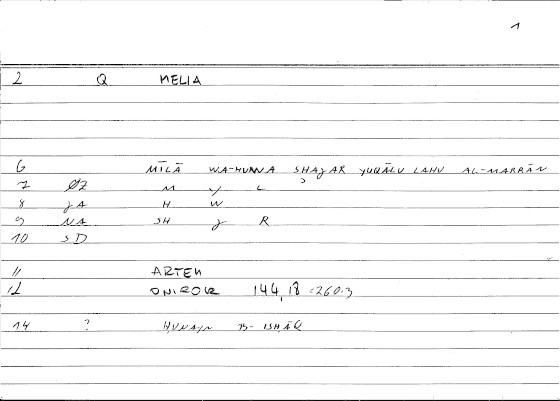 1
2 Q MELIA
6 MĪLĀ WA-HUWA SHAJAR YUQĀLU LAHU AL-MARRĀN
7 ØZ M Y L
8 JA H W
9 NA SH J R
10 SD
11 ARTEM
12 ONIROCR 144,18 =260.3
14 ? HUNAYN B- ISHĀQ